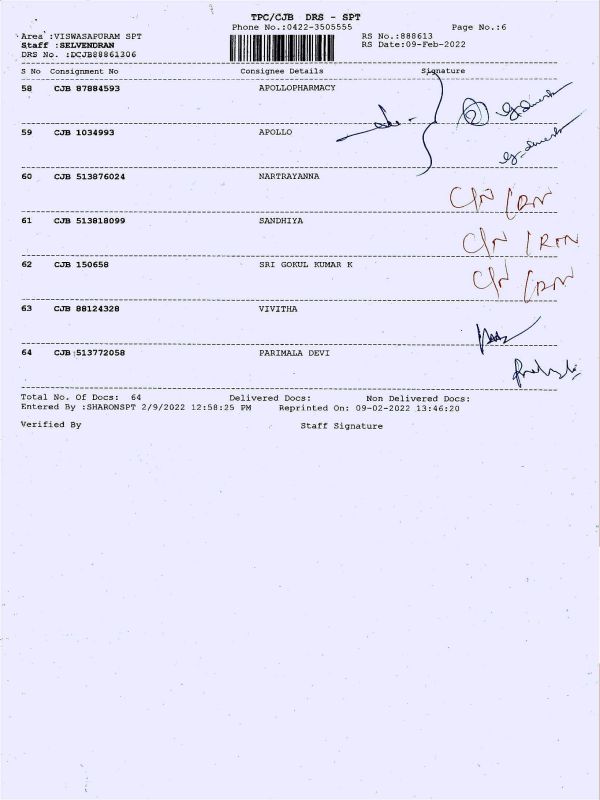 TPC/CJB DRS - SPT
Phone No.:0422-3505555 Page No.:6
Area :VISWASAPORAM SPT RS No.:888613
Staff :SELVENDRAN RS Date:09-Feb-2022
DRS No. :DCJB88861306
S No Consignment No Consignee Details Signature
58 CJB 87884593 APOLLOPHARMACY
59 CJB 1034993 APOLLO
60 CJB 513876024 NARTRAYANNA
C/N / RTN
61 CJB 513818099 SANDHIYA
C/N / RTN
62 CJB 150658 SRI GOKUL KUMAR K
C/N / RTN
63 CJB 88124328 VIVITHA
64 CJB 513772058 PARIMALA DEVI
Total No. Of Docs: 64 Delivered Docs: Non Delivered Docs:
Entered By :SHARONSPT 2/9/2022 12:58:25 PM Reprinted On: 09-02-2022 13:46:20
Verified By Staff Signature